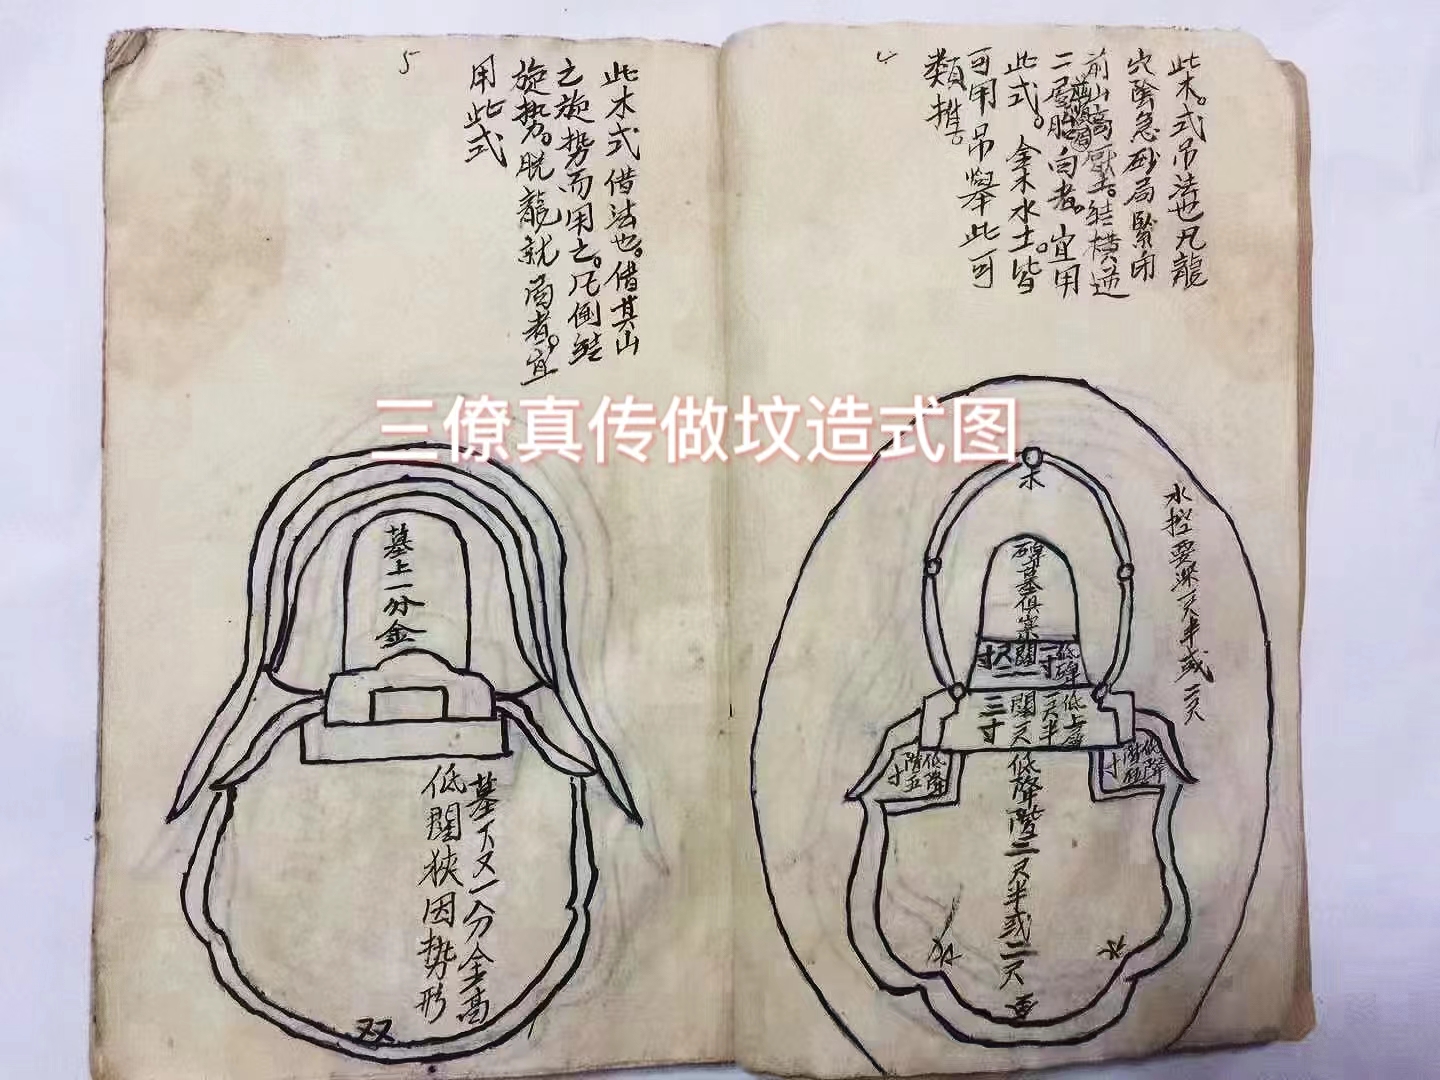 三僚真传做坟造式图
此木式吊法也凡龍
穴陰急砂局緊闭
前山高壓者結横逆
二層胎向者。宜用
此式。金木水土。皆
可用吊舉此可
類推。
水控要深一尺半或二尺
木
碑墓俱寀
闊一尺二寸
低碑一寸
低上层一尺半
闊一尺三寸
低降階五寸
低降階五寸
低降階二尺半或二尺
5
此木式借法也。借其山
之旋势而用之。凡倒結
旋势。脱龍就局者。宜
用此式
墓上一分金
墓下又一分金高
低闊狹因势形
双